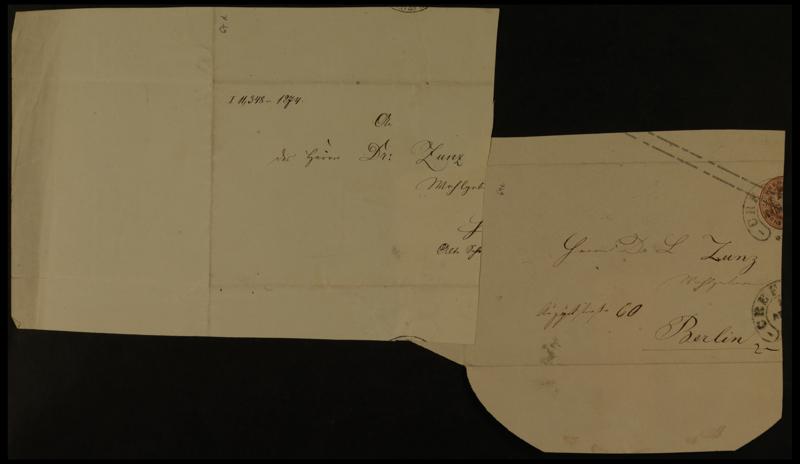 67d.
I 11,348-1874.
An
des Herrn Dr: Zunz
Wohlgeb
Herrn Dr L Zunz
Wohlgeboren
60
Berlin
2-
CREF